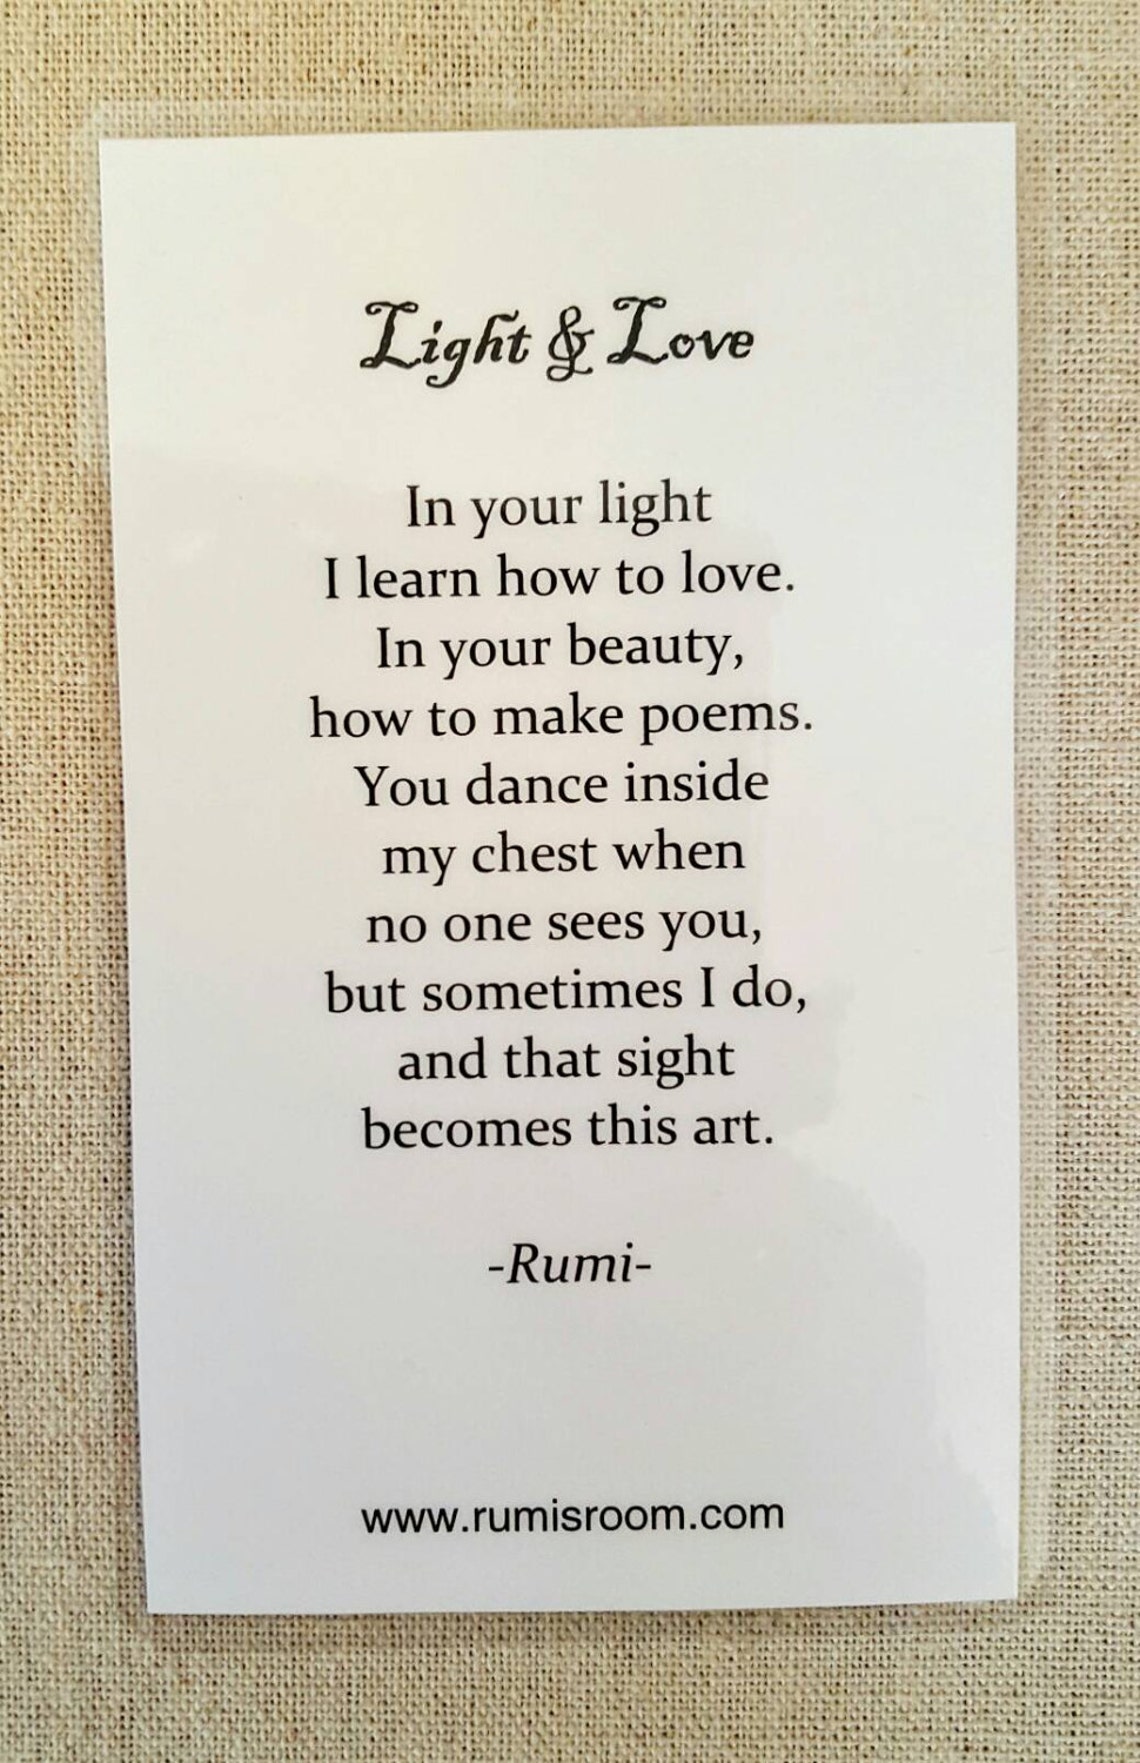 Light & Love
In your light
I learn how to love.
In your beauty,
how to make poems.
You dance inside
my chest when
no one sees you,
but sometimes I do,
and that sight
becomes this art.
-Rumi-
www.rumisroom.com